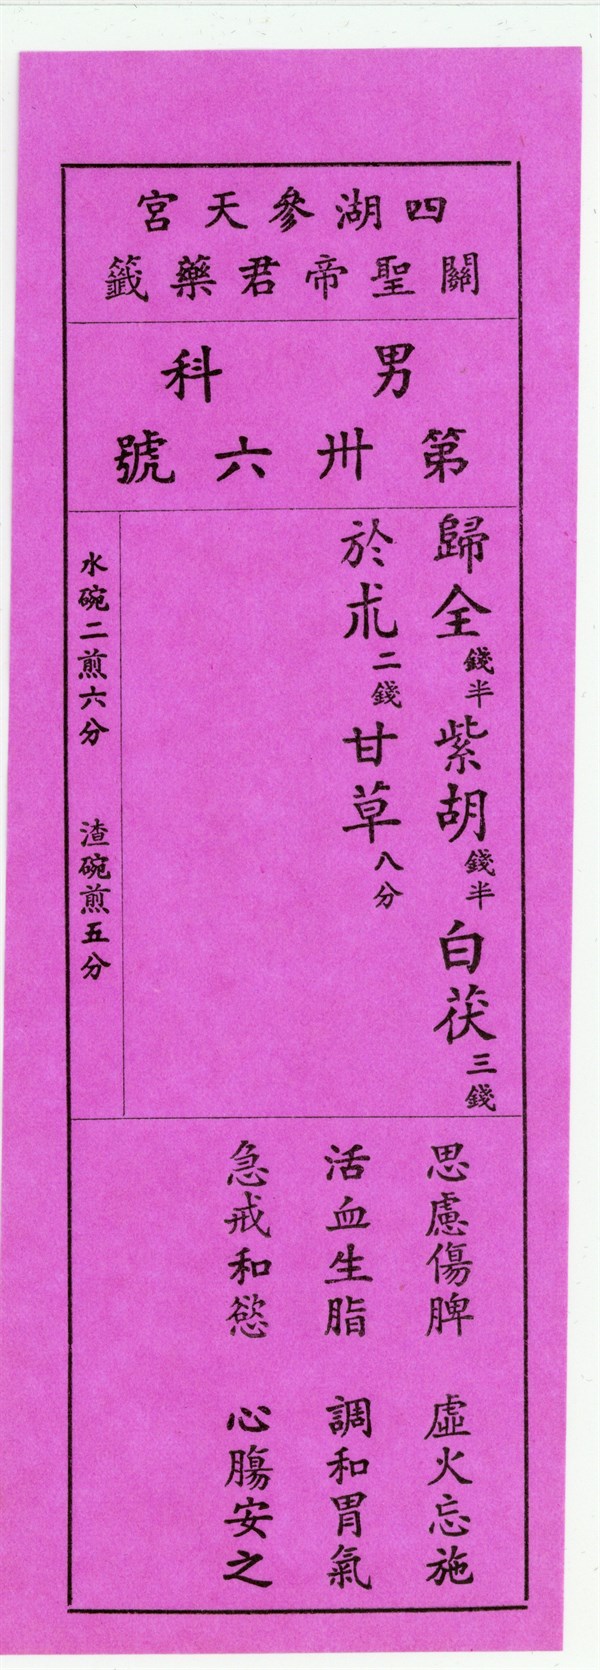 四湖參天宮
關聖帝君藥籤
男科
第卅六號
歸全錢半紫胡錢半白茯三錢
於朮二錢甘草八分
水碗二煎六分 渣碗煎五分
思慮傷脾 虛火忘施
活血生脂 調和胃氣
急戒和慾 心腸安之